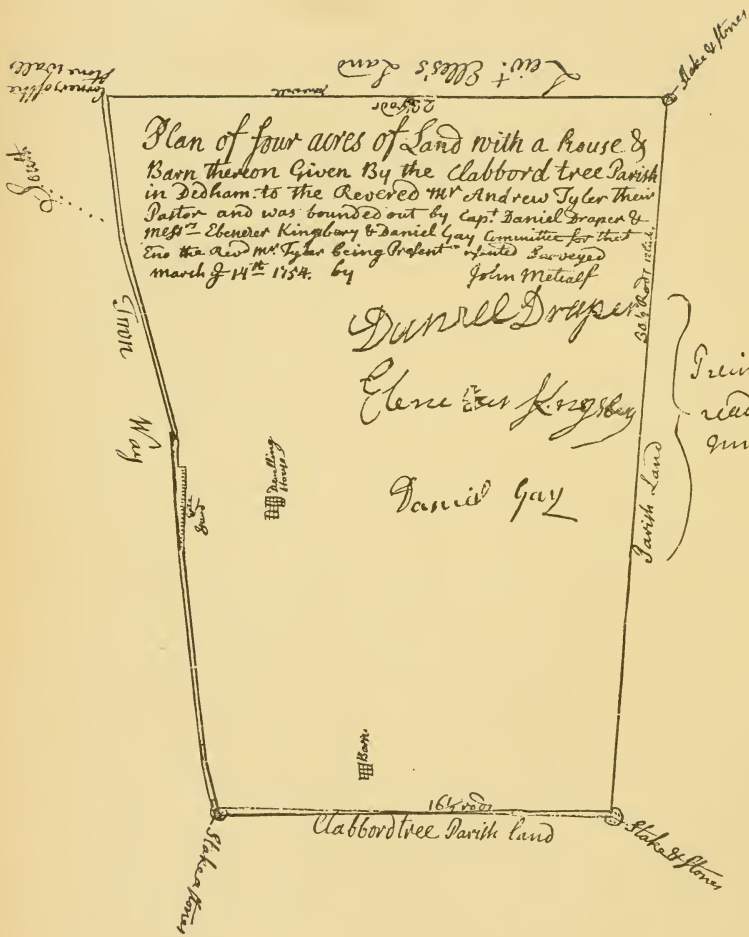 Corner of the
Stone Walls
Leiut Elles's Land
Stake & Stones
Stonewall
23½ rods
Plan of four acres of Land with a house &
Barn thereon Given By the Clabbord tree Parish
in Dedham to the Revered Mr Andrew Tyler their
Pastor and was bounded out by Capt Daniel Draper &
messrs Ebenezer Kingsbery & Daniel Gay Committee for that
End the Revd Mr Tyler being Present Surveyed
march ye 14th 1754. by John Metcalf
Daniell Draper
Ebenezer Kingsbery
Daniel Gay
Town
Way
Dwelling
House
30½ Rods
Parish Land
Barn
16½ rods
Clabbordtree Parish land
Stake & Stones
Stake & Stones